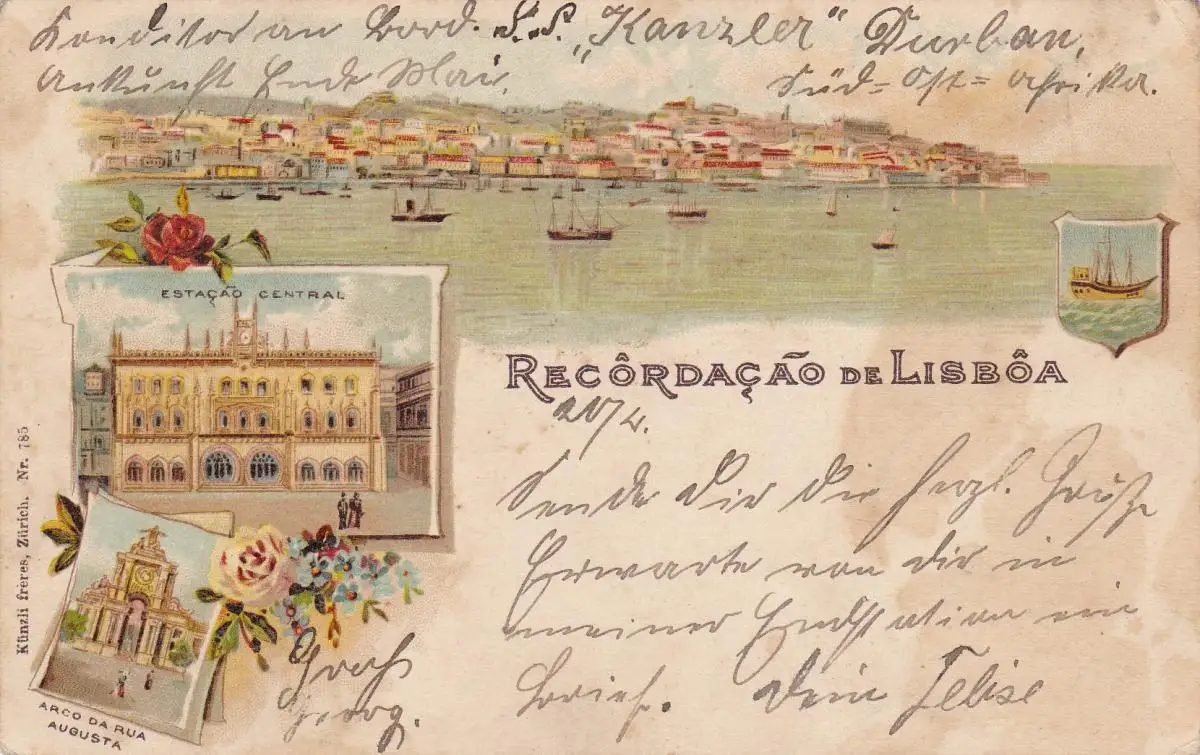 Konditor an Bord. S.S. „Kanzler" Durban,
Ankunft Ende Mai. Süd=Ost=Afrika.
ESTAÇÃO CENTRAL
RECÔRDAÇÃO DE LISBÔA
20/4.
Sende Dir die herzl. Grüße
Erwarte von dir in
meiner Endstation ein
Brief. Dein
Georg.
ARCO DA RUA
AUGUSTA
Künzli frères, Zürich. Nr. 785